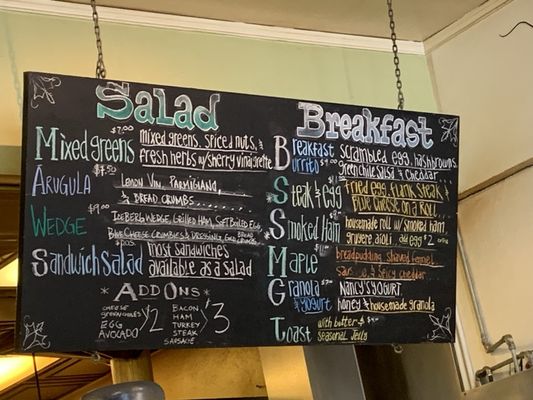 Salad
Mixed greens $7.00 mixed greens, spiced nuts, &
fresh herbs w/ sherry vinaigrette
Arugula $7.50 Lemon Vin, Parmigiano,
& Bread Crumbs
Wedge $9.00 Iceberg Wedge, Grilled Ham, Soft Boiled Egg,
Blue Cheese Crumbles & Dressing,
Sandwich Salad most sandwiches
available as a salad
* Add Ons *
Cheese
Green Chiles
Egg
Avocado
$/2
Bacon
Ham
Turkey
Steak
Sausage
$3
Breakfast
Breakfast Burrito scrambled egg, hashbrowns,
green chile salsa & cheddar
Steak & egg fried egg, flank steak &
blue cheese on a roll
Smoked Ham houserole w/ smoked ham,
gruyere aioli add egg $2
Maple bread pudding, shaved fennel,
sausage & spicy cheddar
Granola & yogurt Nancy's yogurt
honey & housemade granola
Toast with butter &
seasonal jelly